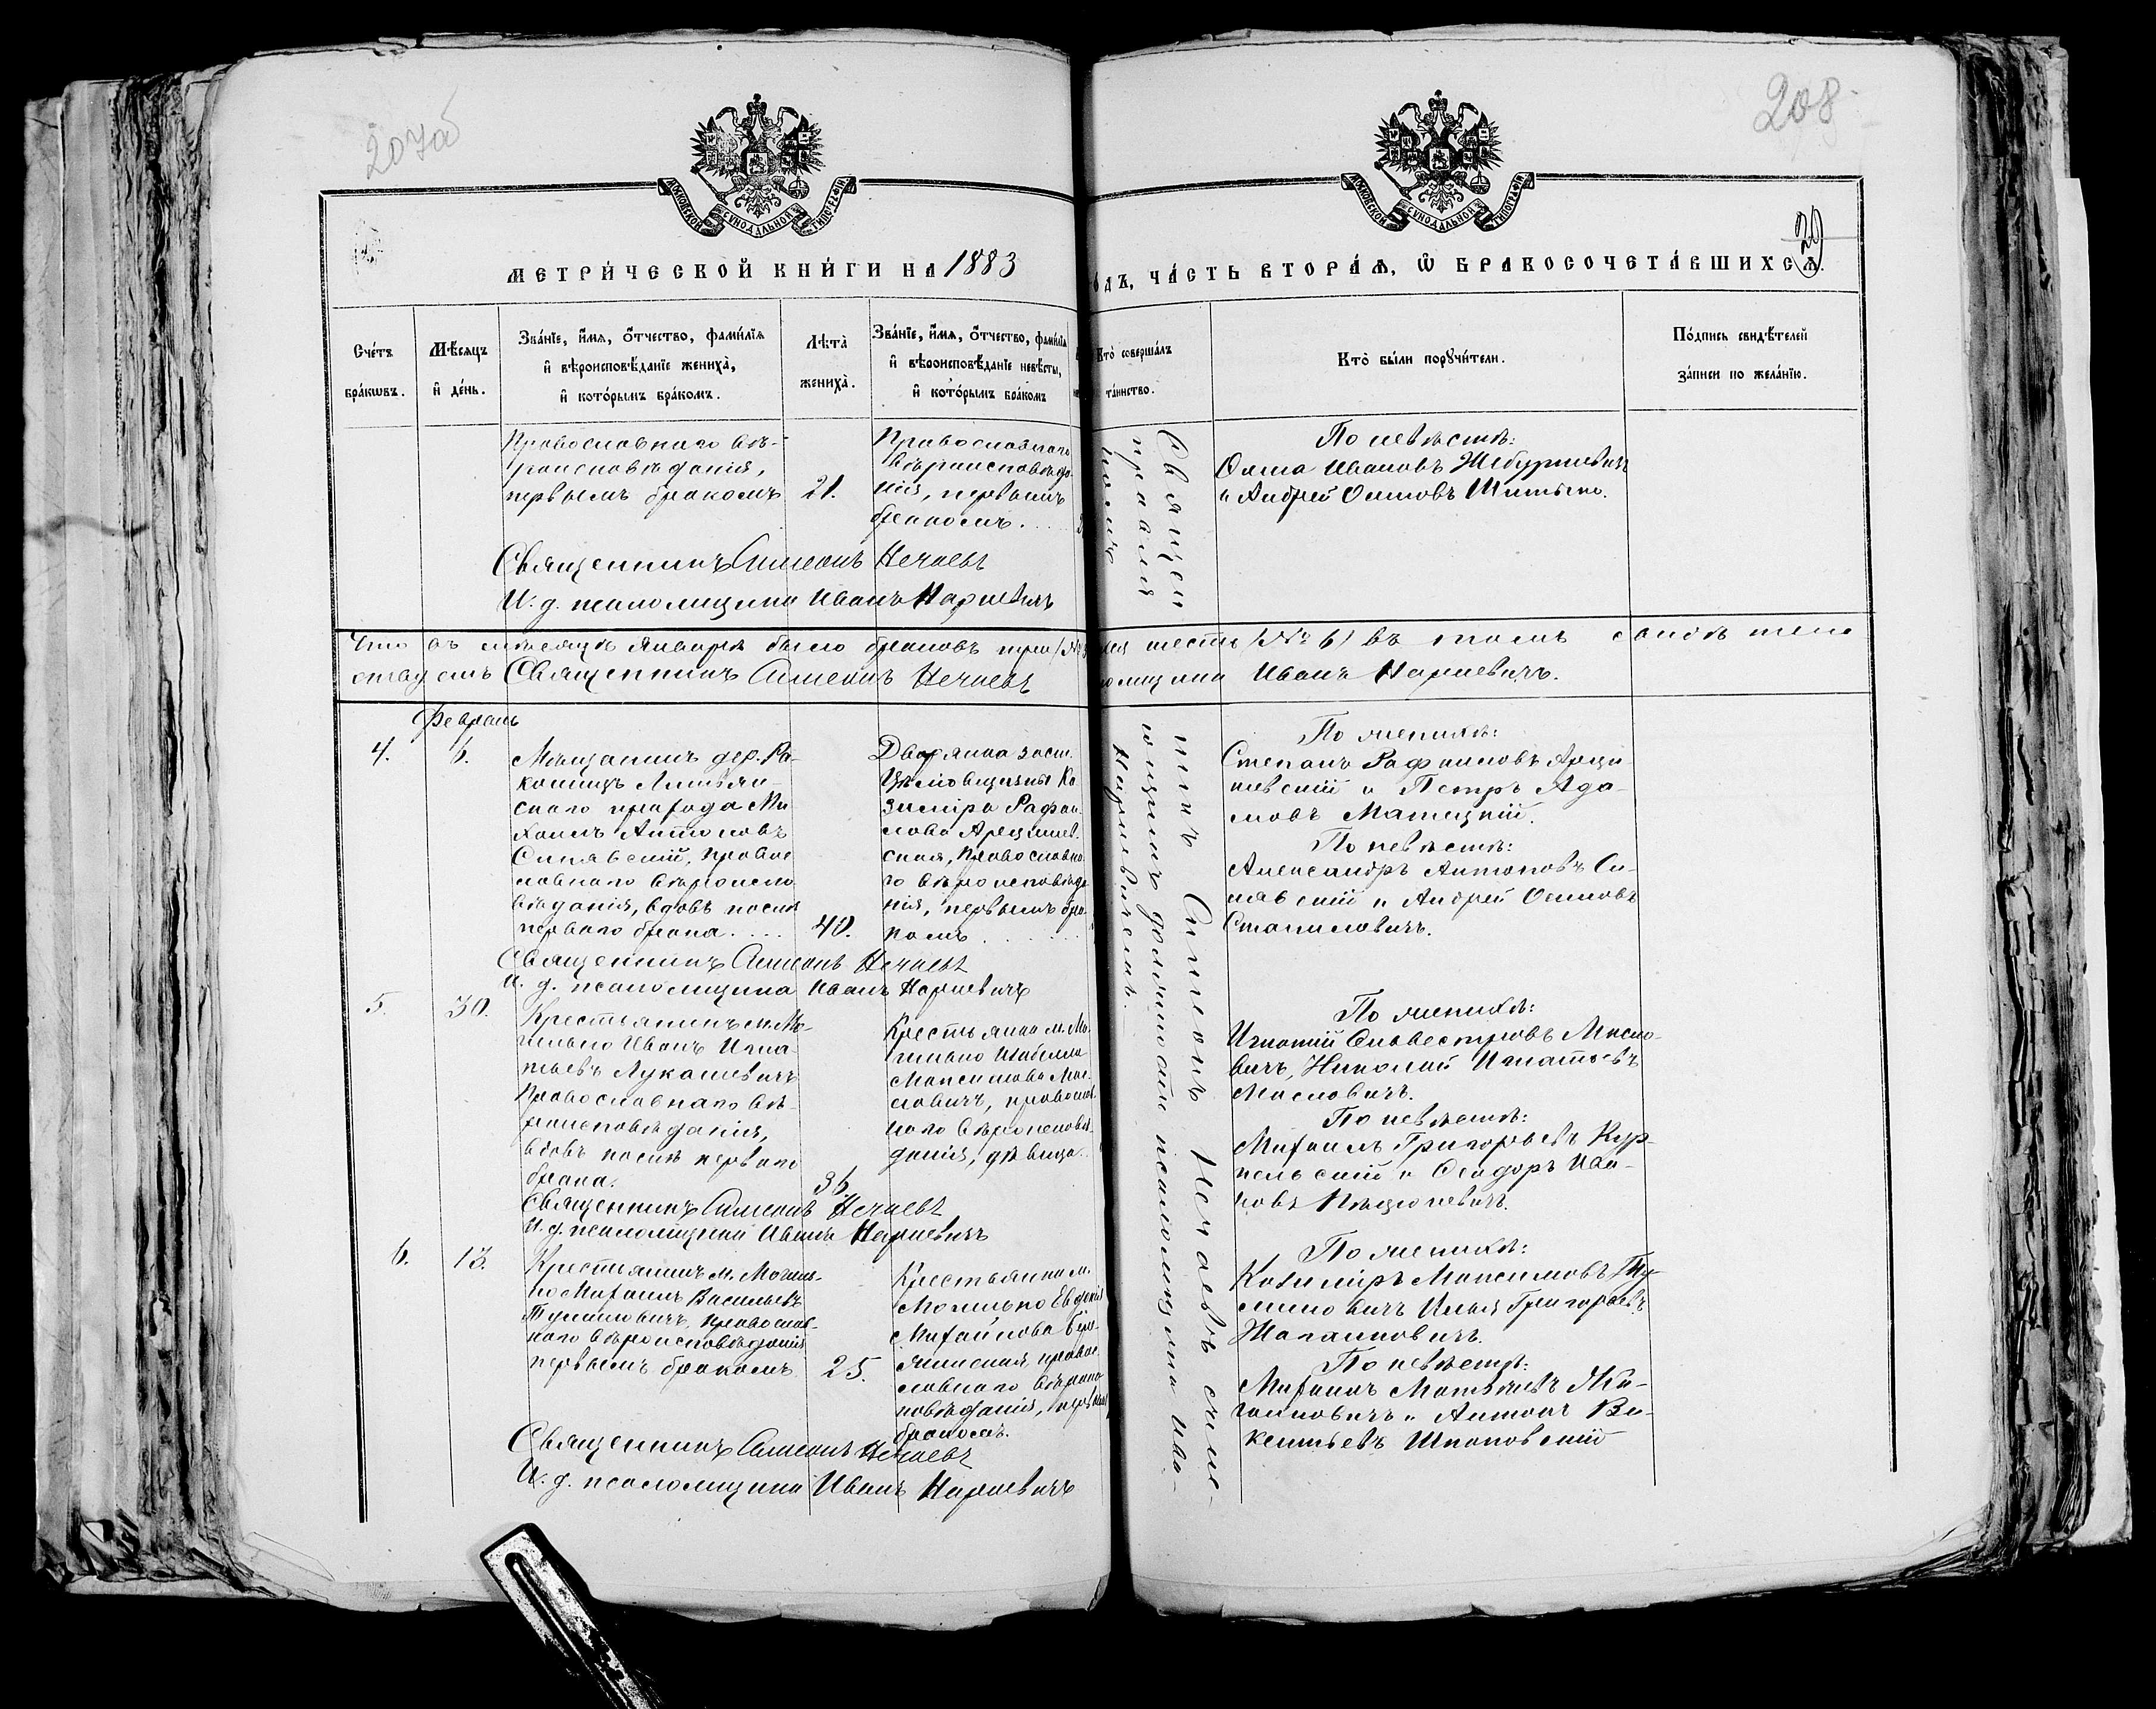 207об
208
20
МОСКОВСКОЙ СѴНОДАЛЬНОЙ ТИПОГРАФІИ
МОСКОВСКОЙ СѴНОДАЛЬНОЙ ТИПОГРАФІИ
МЕТРИ́ЧЕСКОЙ КНИ́ГИ НА 1883
ѻ́дъ, ЧА́СТЬ ВТОРА́Я, Ѡ БРАКОСОЧЕТА́ВШИХСЯ.
Сче́тъ бра́кѡвъ.
Мѣ́сяцъ и҆ де́нь.
Зва́нїе, и҆́мя, ѻ҆́тчество, фами́лїя
и҆ вѣроисповѣ́данїе жениха̀,
и҆ кото́рымъ бра́комъ.
Лѣта̀ жениха̀.
Зва́нїе, и҆́мя, ѻ҆́тчество, фами́лїя
и҆ вѣроисповѣ́данїе невѣ́сты,
и҆ кото́рымъ бра́комъ
Кто̀ соверша́лъ
та́инство.
Кто̀ бы́ли порꙋчи́тели.
По́дпись свидѣ́телей
за́писи по жела́нїю.
Православнаго вѣ-
роисповѣданія,
первымъ бракомъ
21.
Православнаго
вѣроисповѣда
нія, первымъ
бракомъ.
По невѣстѣ:
Осипъ Ивановъ
и Андрей Осиповъ
Священникъ Симеонъ Нечаевъ
И. д. псаломщика Иванъ Наркевичъ
Что въ мѣсяцѣ Январѣ было браковъ три
шесть (№ 6) въ томъ
Священникъ Симеонъ Нечаевъ
Иванъ Наркевичъ.
Февраль
4.
6.
Мѣщанинъ дер. Ра-
скаго прихода Ми
хаилъ Антоновъ
Синявскій, правос
лавнаго вѣроиспо
вѣданія, вдовъ послѣ
перваго брака....
40.
Дворянка заст.
Ка
зиміра Рафаи
лова
ская, православна
го вѣроисповѣда
нія, первымъ бра
комъ.
По женихѣ:
Степанъ Рафаиловъ
и Петръ Ада-
мовъ Матецкій.
По невѣстѣ:
Александръ Антоновъ Си-
нявскій и Андрей Осиповъ
Станиловичъ.
Священникъ Симеонъ Нечаевъ
И. д. псаломщика Иванъ Наркевичъ
5.
30.
Крестьянинъ м. Мо-
гильно Иванъ Игна-
тьевъ Лукашевичъ
Православнаго вѣ-
роисповѣданія,
вдовъ послѣ перваго
брака.
36.
Крестьянка м. Мо-
гильно Изабелла
Максимова Мас-
ловичъ, православ-
наго вѣроисповѣ-
данія, дѣвица.
По женихѣ:
Игнатій Сильвестровъ Масло-
вичъ, Николай Игнатьевъ
Масловичъ.
По невѣстѣ:
Михаилъ Григорьевъ Кур-
и Сидоръ Ива-
новъ
Священникъ Симеонъ Нечаевъ
И. д. псаломщика Иванъ Наркевичъ
6.
13.
Крестьянинъ м. Могиль-
но Михаилъ Васильевъ
Тумиловичъ, православ-
наго вѣроисповѣданія
первымъ бракомъ
25.
Крестьянка м.
Могильно Евдокія
Михайлова
правос
лавнаго вѣроис
повѣданія, первымъ
бракомъ.
По женихѣ:
Казиміръ Максимовъ Ту-
миловичъ Илья Григорьевъ
Жагановичъ.
По невѣстѣ:
Михаилъ Матвѣевъ Жа-
гановичъ и Антонъ Ви-
кентьевъ Шпаковскій
Священникъ Симеонъ Нечаевъ
И. д. псаломщика Иванъ Наркевичъ
Священ
никъ Симеонъ Нечаевъ съ ис-
правля
ющимъ должность псаломщика Ива-
номъ
Наркевичемъ.